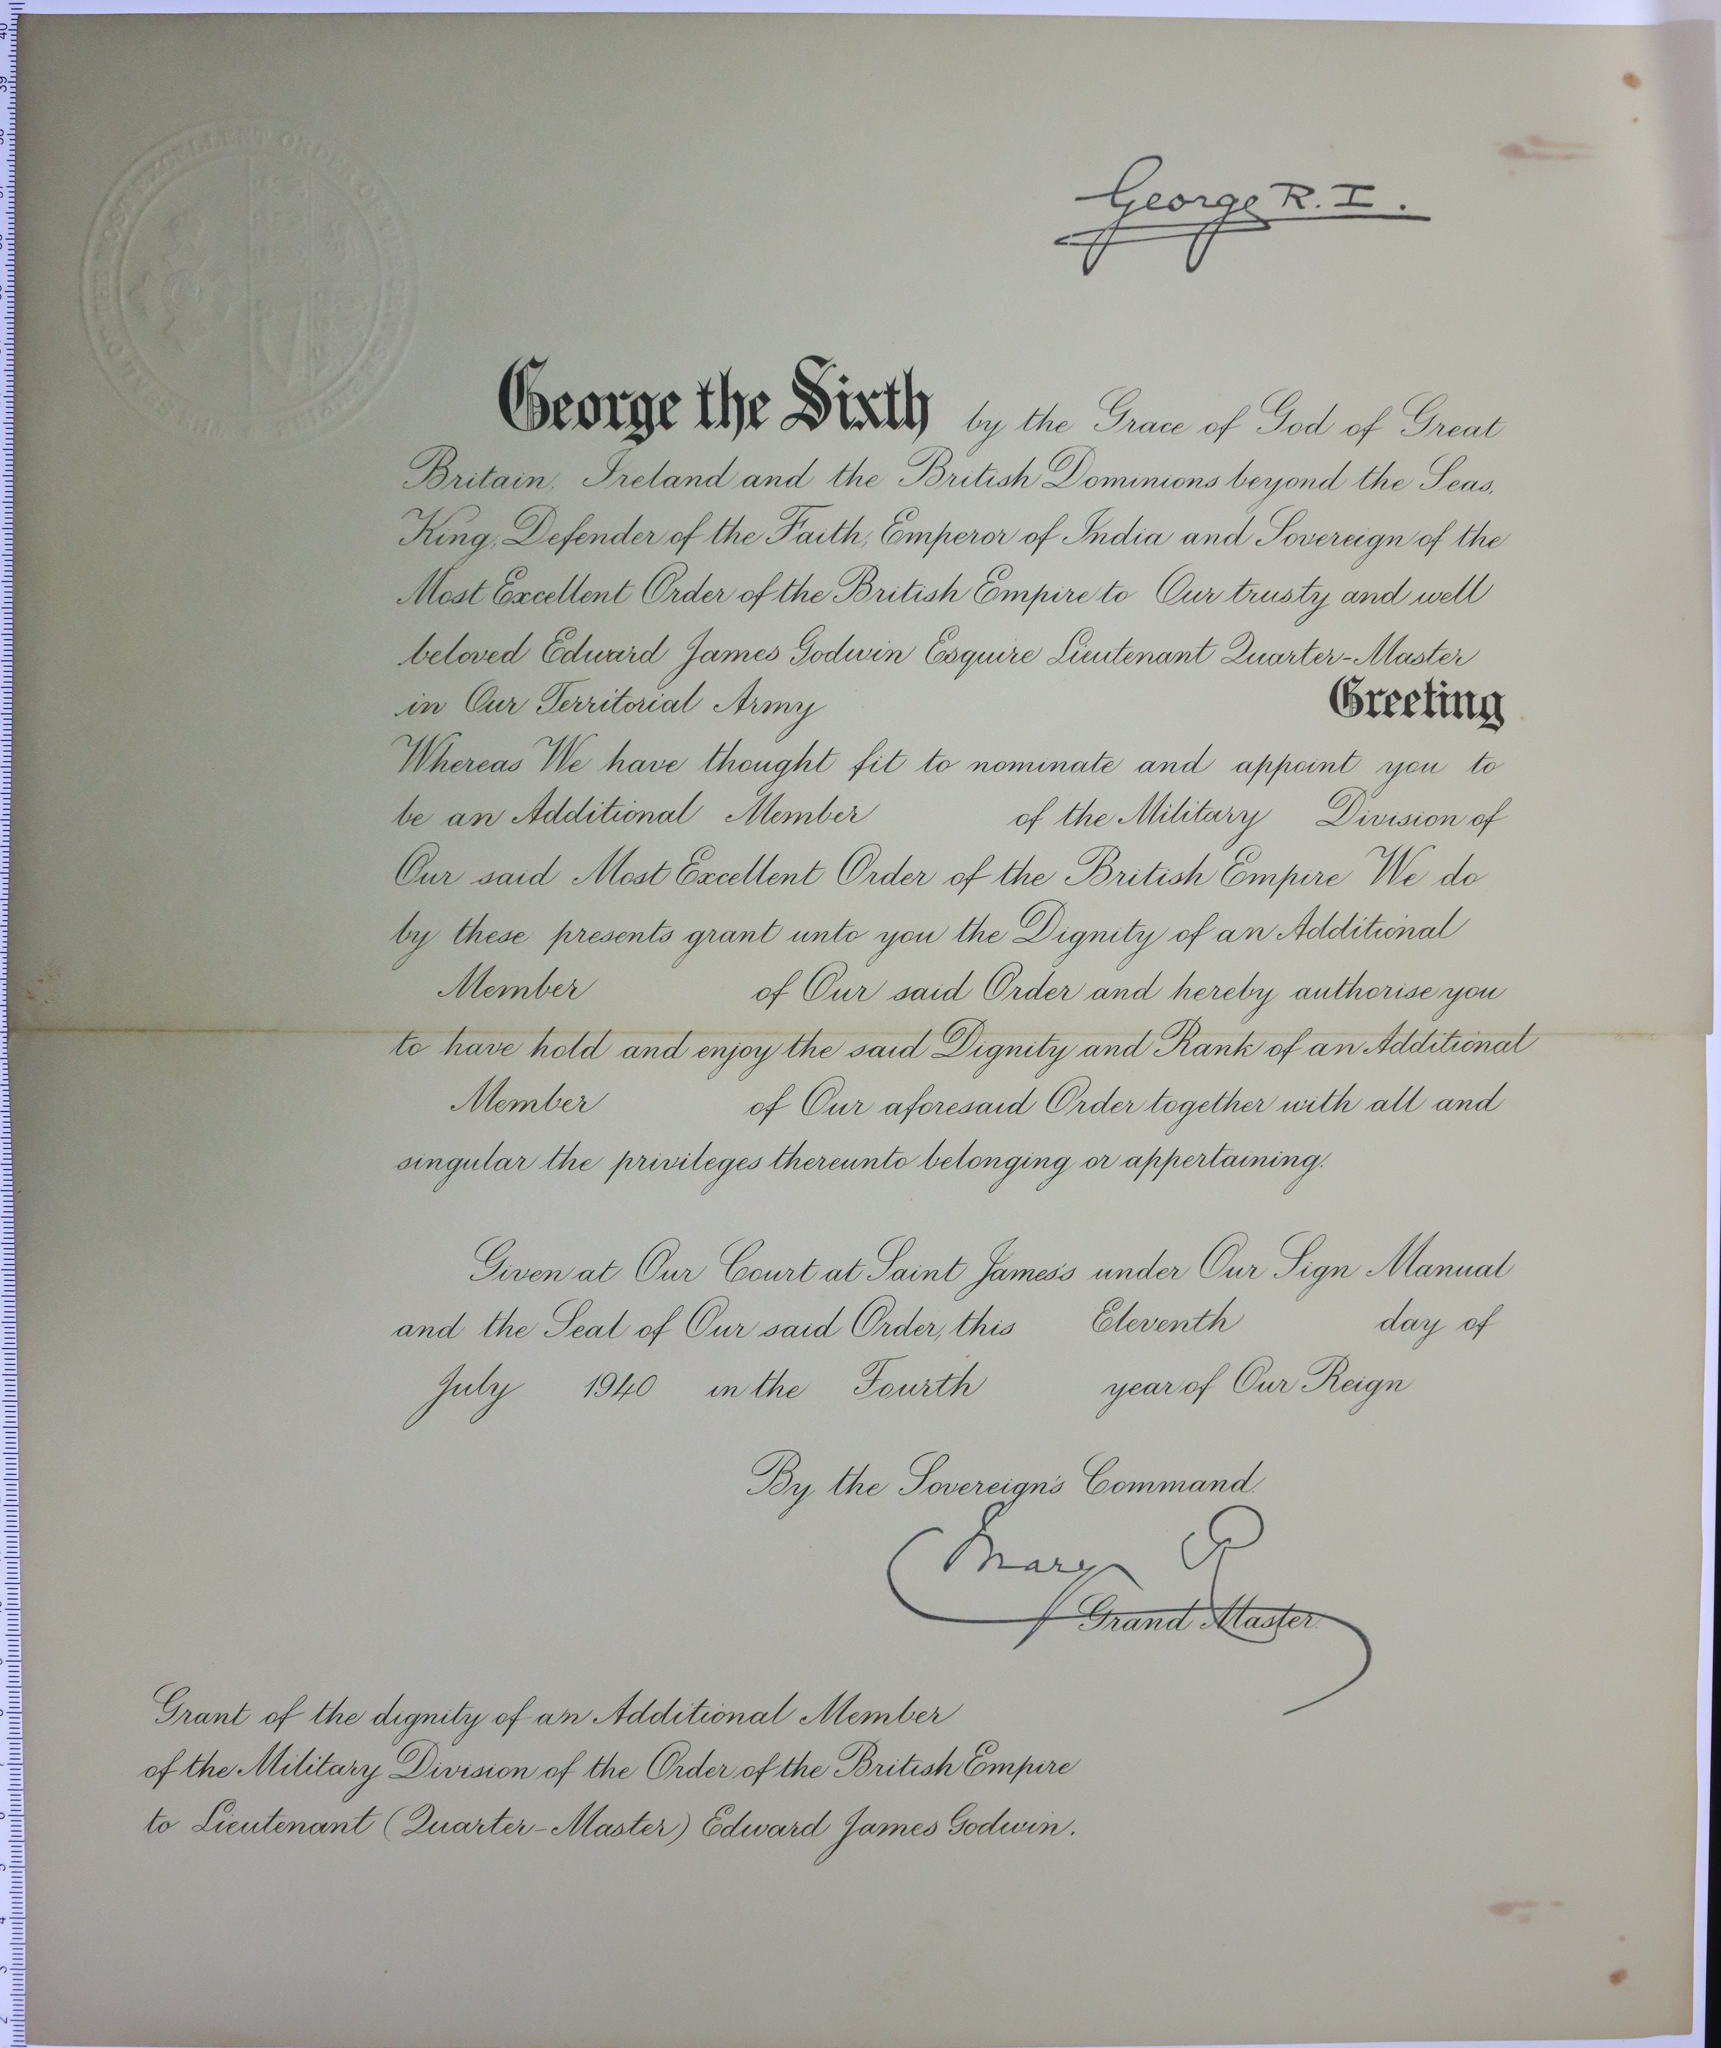 George R. I.
George the Sixth by the Grace of God of Great
Britain, Ireland and the British Dominions beyond the Seas,
King, Defender of the Faith, Emperor of India and Sovereign of the
Most Excellent Order of the British Empire to Our trusty and well
beloved Edward James Godwin Esquire Lieutenant Quarter-Master
in Our Territorial Army Greeting
Whereas We have thought fit to nominate and appoint you to
be an Additional Member of the Military Division of
Our said Most Excellent Order of the British Empire We do
by these presents grant unto you the Dignity of an Additional
Member of Our said Order and hereby authorise you
to have hold and enjoy the said Dignity and Rank of an Additional
Member of Our aforesaid Order together with all and
singular the privileges thereunto belonging or appertaining.
Given at Our Court at Saint James's under Our Sign Manual
and the Seal of Our said Order, this Eleventh day of
July 1940 in the Fourth year of Our Reign
By the Sovereign's Command.
Mary R
Grand Master.
Grant of the dignity of an Additional Member
of the Military Division of the Order of the British Empire
to Lieutenant (Quarter-Master) Edward James Godwin.